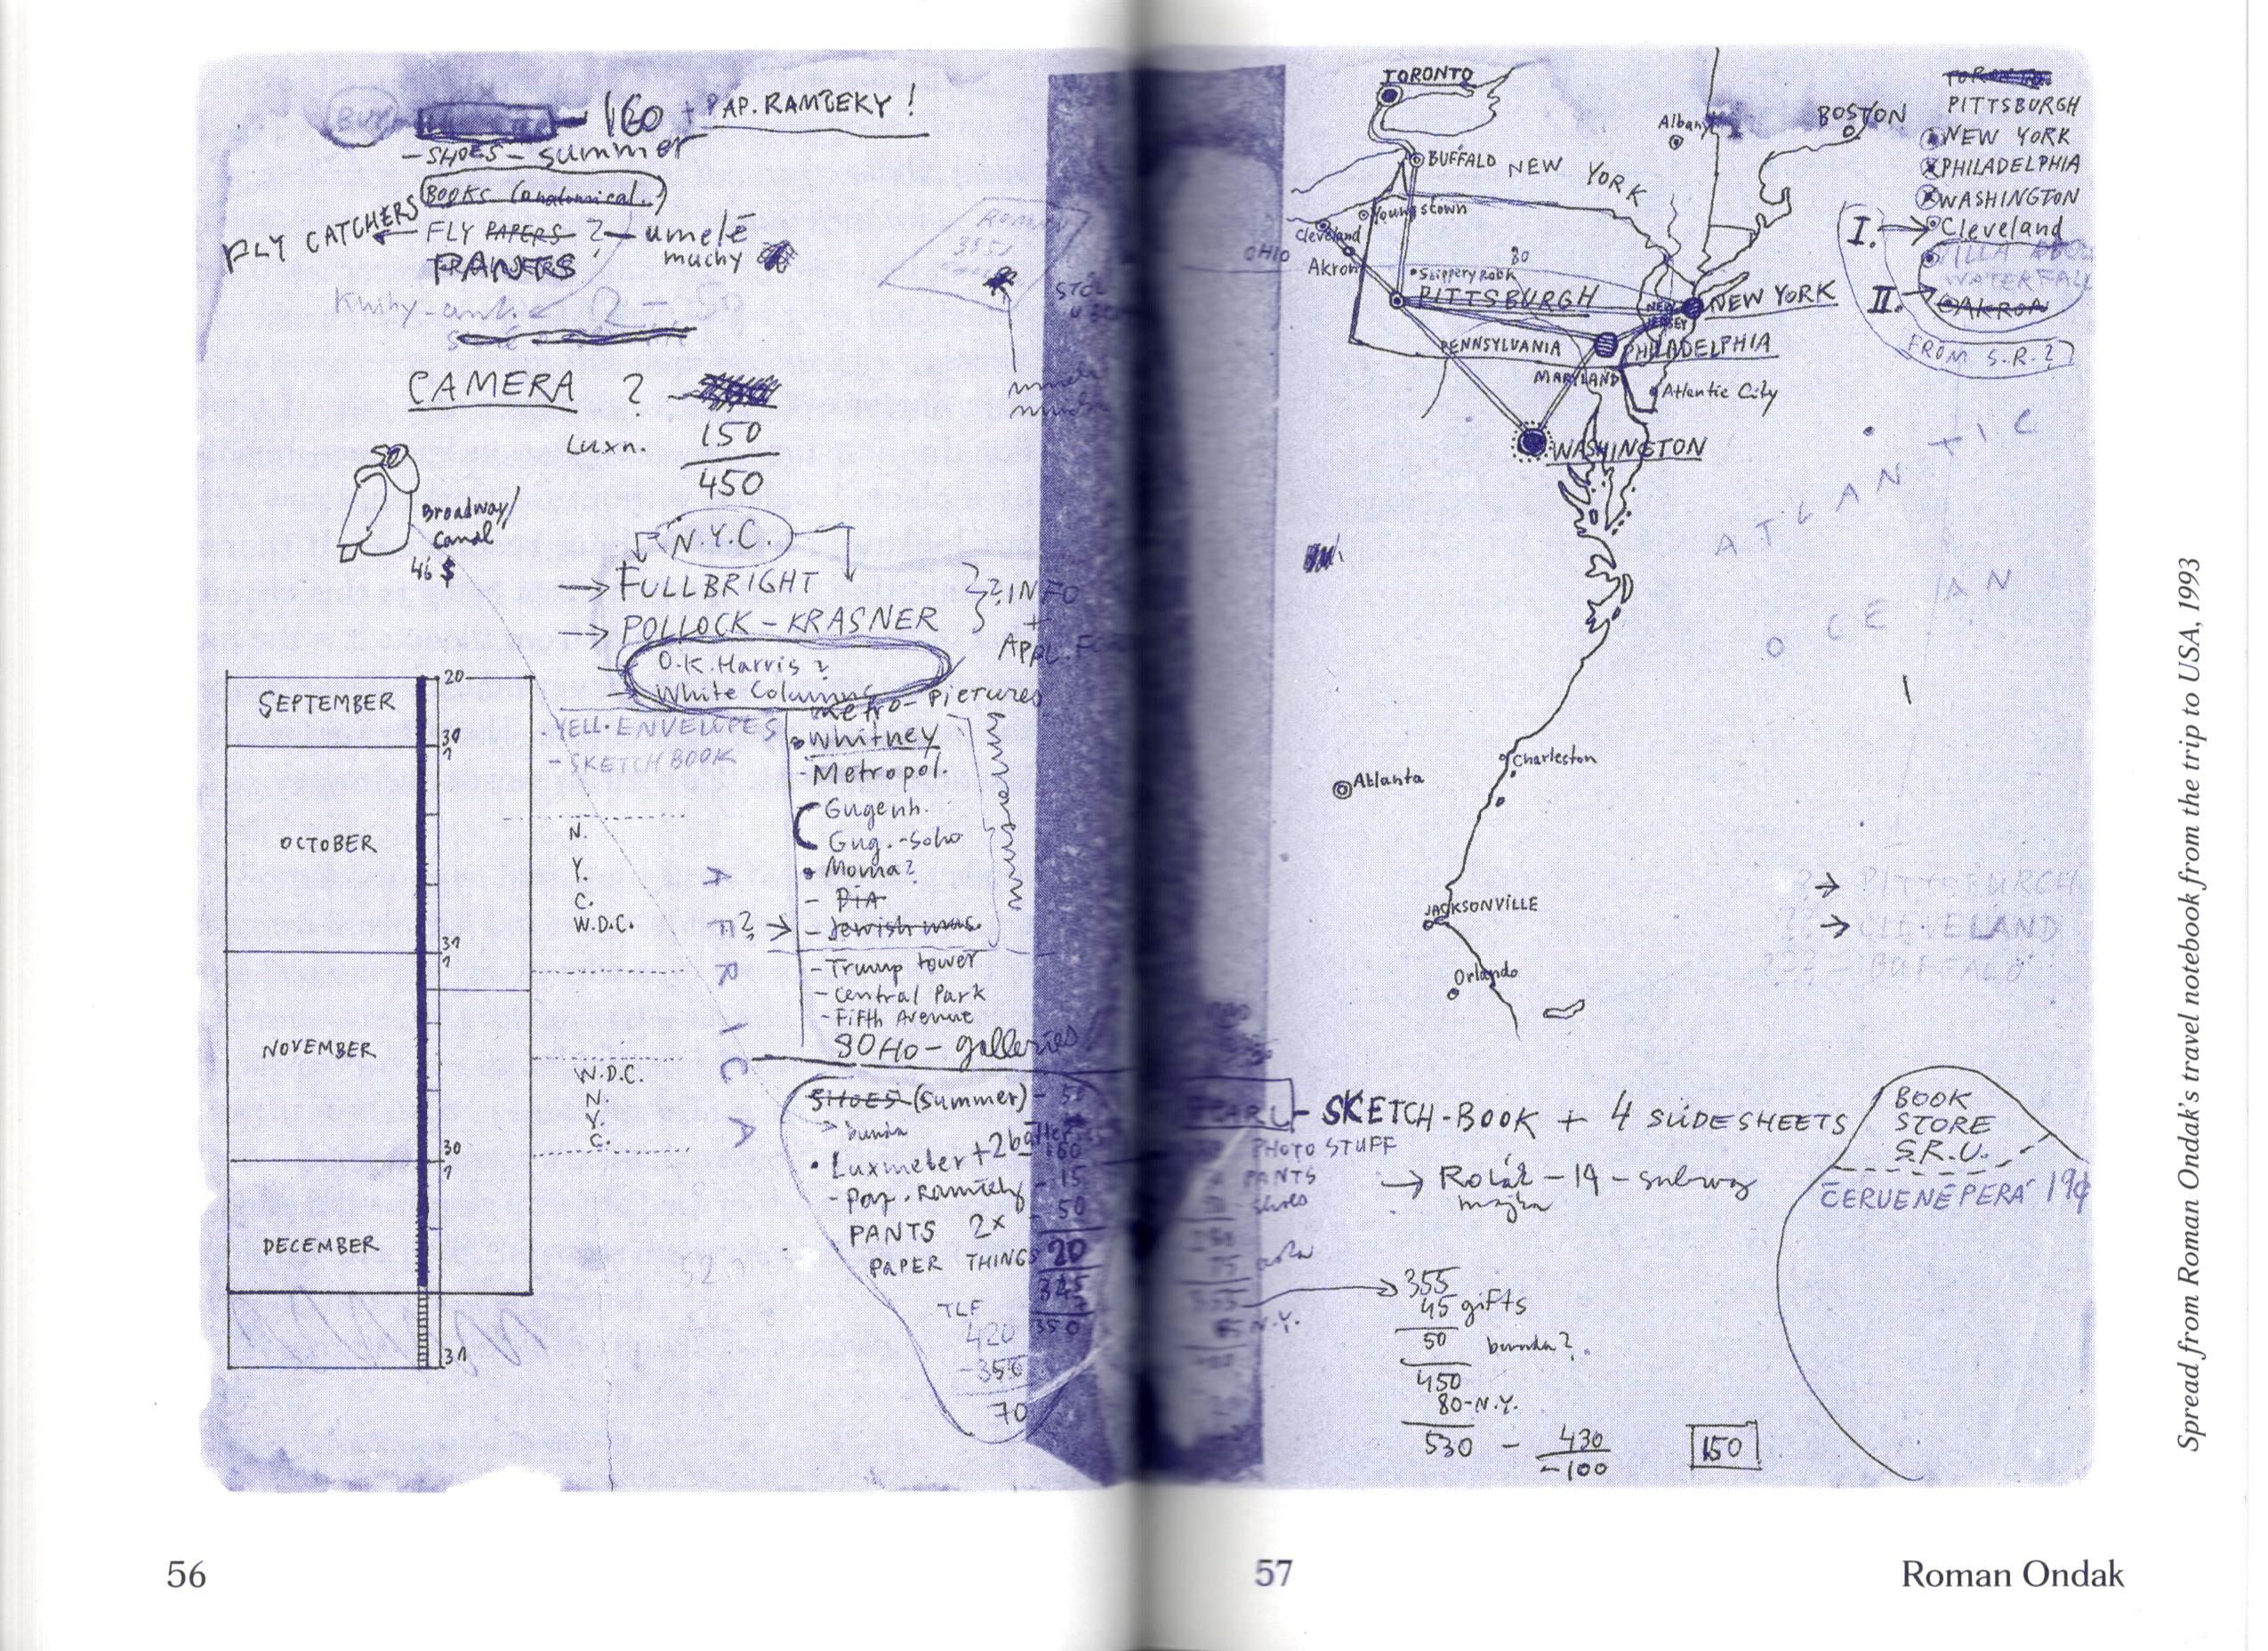 BUY
160 + PAP. RAMČEKY !
- SHOES - summer
BOOKS (anatomical.)
FLY CATCHERS
FLY PAPERS ? - umelé
muchy
PANTS
Knihy-ant.
CAMERA ?
Luxn. 150
450
Broadway/
Canal
46 $
N.Y.C.
→ FULLBRIGHT
→ POLLOCK - KRASNER
? INFO
+
APPL. F
O.K. Harris ?
White Columns
metro - pictures
SEPTEMBER
20
30
1
OCTOBER
31
1
NOVEMBER
30
1
DECEMBER
31
- YELL. ENVELOPES
- SKETCH BOOK
N.
Y.
C.
W.D.C.
W.D.C.
N.
Y.
C.
AMERICA
Whitney
- Metropol.
Gugenh.
Gug. - Soho
Moma?
- DIA
? → - Jewish mus.
museums
- Trump tower
- Central Park
- Fifth Avenue
SOHO - galleries
SHOES (summer) - 50
bunda
• Luxmeter + 2 batter. 160
- Pap. Ramčeky - 15
PANTS 2x 50
PAPER THINGS 20
345
350
TLF
420
-350
70
ROMAN
TORONTO
BUFFALO
NEW YORK
Albany
BOSTON
Youngstown
Cleveland
Akron
OHIO
80
Slippery Rock
PITTSBURGH
NEW YORK
NEW
JERSEY
PENNSYLVANIA
PHILADELPHIA
MARYLAND
Atlantic City
WASHINGTON
TORONTO
PITTSBURGH
NEW YORK
PHILADELPHIA
WASHINGTON
I. → Cleveland
VILLA ABOVE
WATERFALL
II. → AKRON
FROM S.R.?
ATLANTIC
OCEAN
Atlanta
Charleston
JACKSONVILLE
Orlando
? → PITTSBURGH
?? → CLEVELAND
??? BUFFALO
- SKETCH-BOOK + 4 SLIDESHEETS
PHOTO STUFF
PANTS
shoes
→ Rolák - 14 - subway
majka
BOOK
STORE
S.R.U.
ČERVENÉ PERÁ 19¢
→ 355
45 gifts
50 bunda?
450
80-N.Y.
530 - 430
-100
150
N.Y.
Spread from Roman Ondak's travel notebook from the trip to USA, 1993
56
57
Roman Ondak